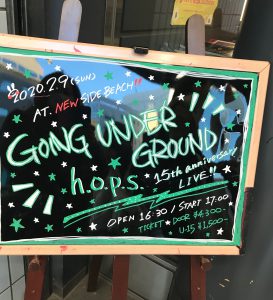 "2020.2.9 (SUN)
AT. NEW SIDE BEACH"
GOING UNDER
GROUND
h.o.p.s. 15th anniversary
LIVE!!
OPEN 16:30 / START 17:00
TICKET ★ DOOR ¥4,300-
U-15 ¥1,500-